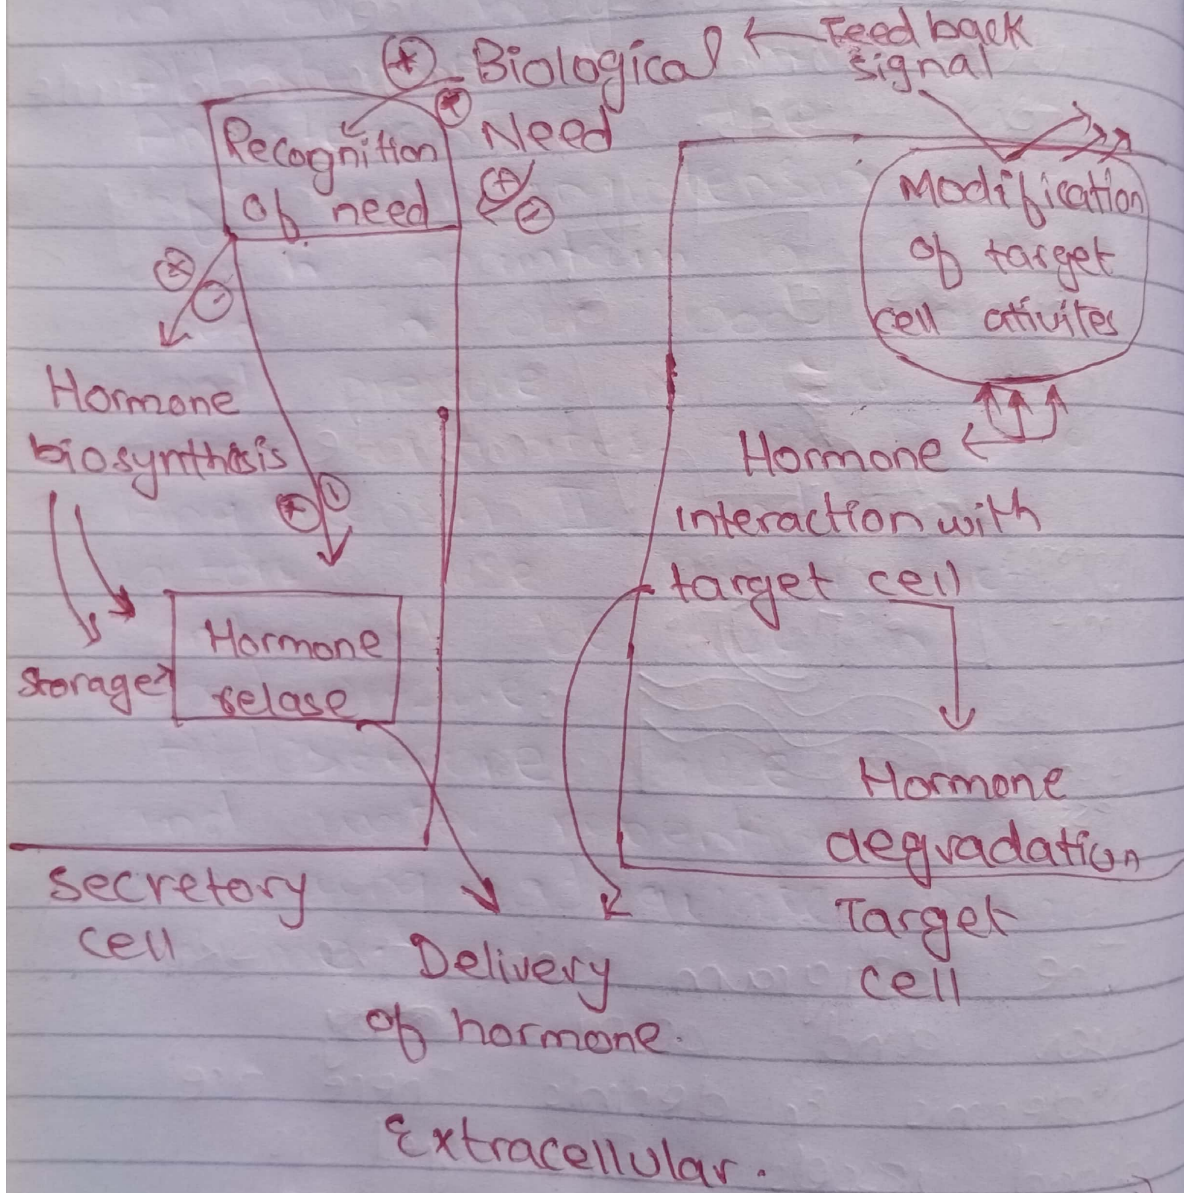 Biological
Need
Feedback
signal
Recognition
of need
Modification
of target
cell ativites
Hormone
biosynthesis
Hormone
interaction with
target cell
Hormone
relase
storage
Hormone
degradation
secretory
cell
Target
cell
Delivery
of hormone.
Extracellular.